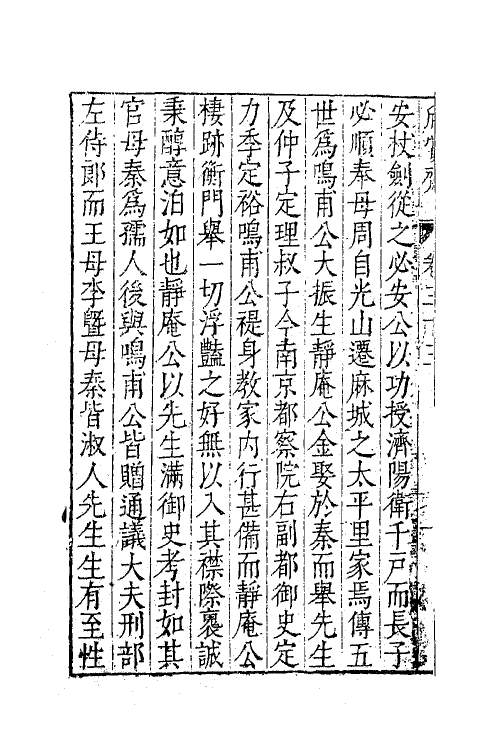 安杖劍從之必安公以功授濟陽衛千戸而長子
必順奉母周自光山遷麻城之太平里家焉傳五
世爲鳴甫公大振生靜庵公金娶於秦而舉先生
及仲子定理叔子今南京都察院右副都御史定
力季定裕鳴甫公禔身教家内行甚備而靜庵公
棲跡衡門舉一切浮豔之好無以入其襟際褱誠
秉醇意泊如也靜庵公以先生滿御史考封如其
官母秦爲孺人後與鳴甫公皆贈通議大夫刑部
左侍郎而王母李曁母秦皆淑人先生生有至性